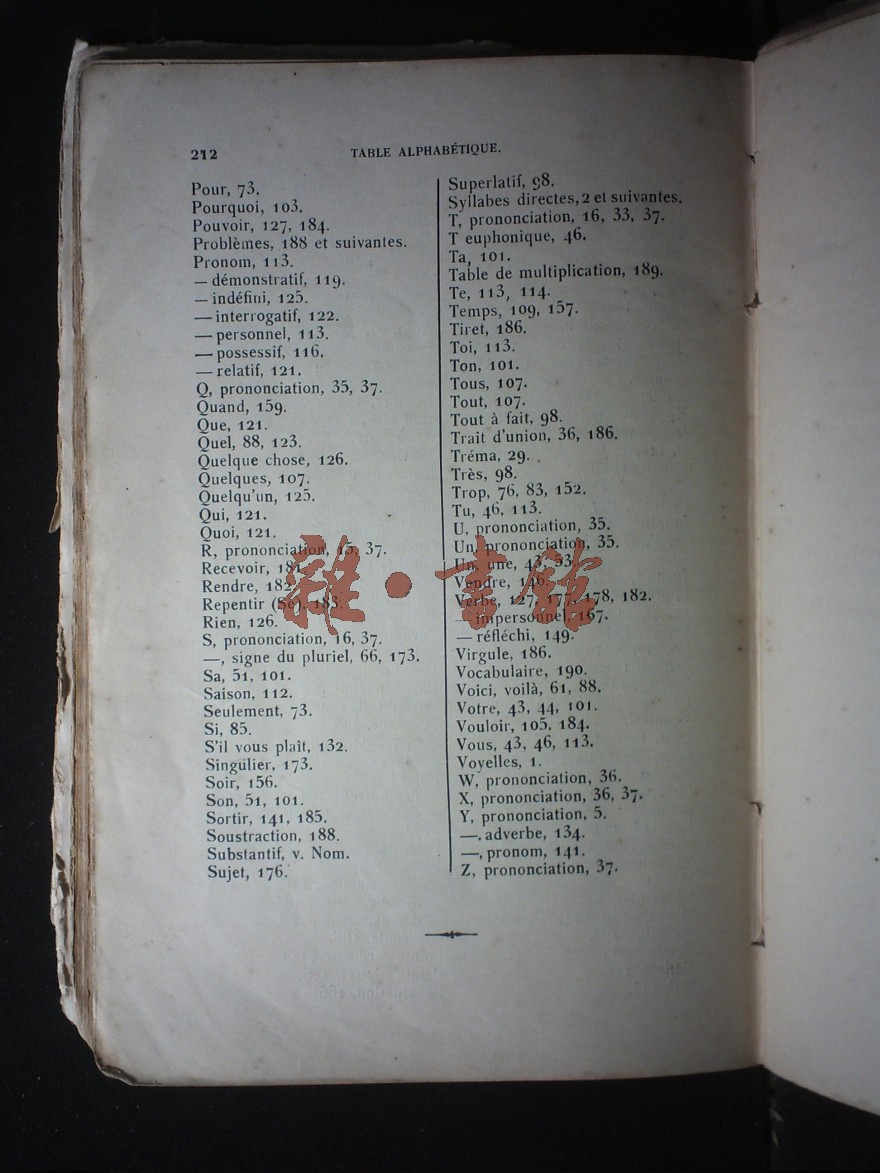 212
TABLE ALPHABÉTIQUE.
Pour, 73.
Pourquoi, 103.
Pouvoir, 127, 184.
Problèmes, 188 et suivantes.
Pronom, 113.
— démonstratif, 119.
— indéfini, 125.
— interrogatif, 122.
— personnel, 113.
— possessif, 116.
— relatif, 121.
Q, prononciation, 35, 37.
Quand, 159.
Que, 121.
Quel, 88, 123.
Quelque chose, 126.
Quelques, 107.
Quelqu'un, 125.
Qui, 121.
Quoi, 121.
R, prononciation, 15, 37.
Recevoir, 181.
Rendre, 182.
Repentir (Se), 183.
Rien, 126.
S, prononciation, 16, 37.
—, signe du pluriel, 66, 173.
Sa, 51, 101.
Saison, 112.
Seulement, 73.
Si, 85.
S'il vous plaît, 132.
Singulier, 173.
Soir, 156.
Son, 51, 101.
Sortir, 141, 185.
Soustraction, 188.
Substantif, v. Nom.
Sujet, 176.
Superlatif, 98.
Syllabes directes, 2 et suivantes.
T, prononciation, 16, 33, 37.
T euphonique, 46.
Ta, 101.
Table de multiplication, 189.
Te, 113, 114.
Temps, 109, 157.
Tiret, 186.
Toi, 113.
Ton, 101.
Tous, 107.
Tout, 107.
Tout à fait, 98.
Trait d'union, 36, 186.
Tréma, 29.
Très, 98.
Trop, 76, 83, 152.
Tu, 46, 113.
U, prononciation, 35.
Un, prononciation, 35.
Un, une, 43, 53.
Vendre, 146.
Verbe, 127, 177, 178, 182.
— impersonnel, 167.
— réfléchi, 149.
Virgule, 186.
Vocabulaire, 190.
Voici, voilà, 61, 88.
Votre, 43, 44, 101.
Vouloir, 105, 184.
Vous, 43, 46, 113.
Voyelles, 1.
W, prononciation, 36.
X, prononciation, 36, 37.
Y, prononciation, 5.
—, adverbe, 134.
—, pronom, 141.
Z, prononciation, 37.
雜·書館